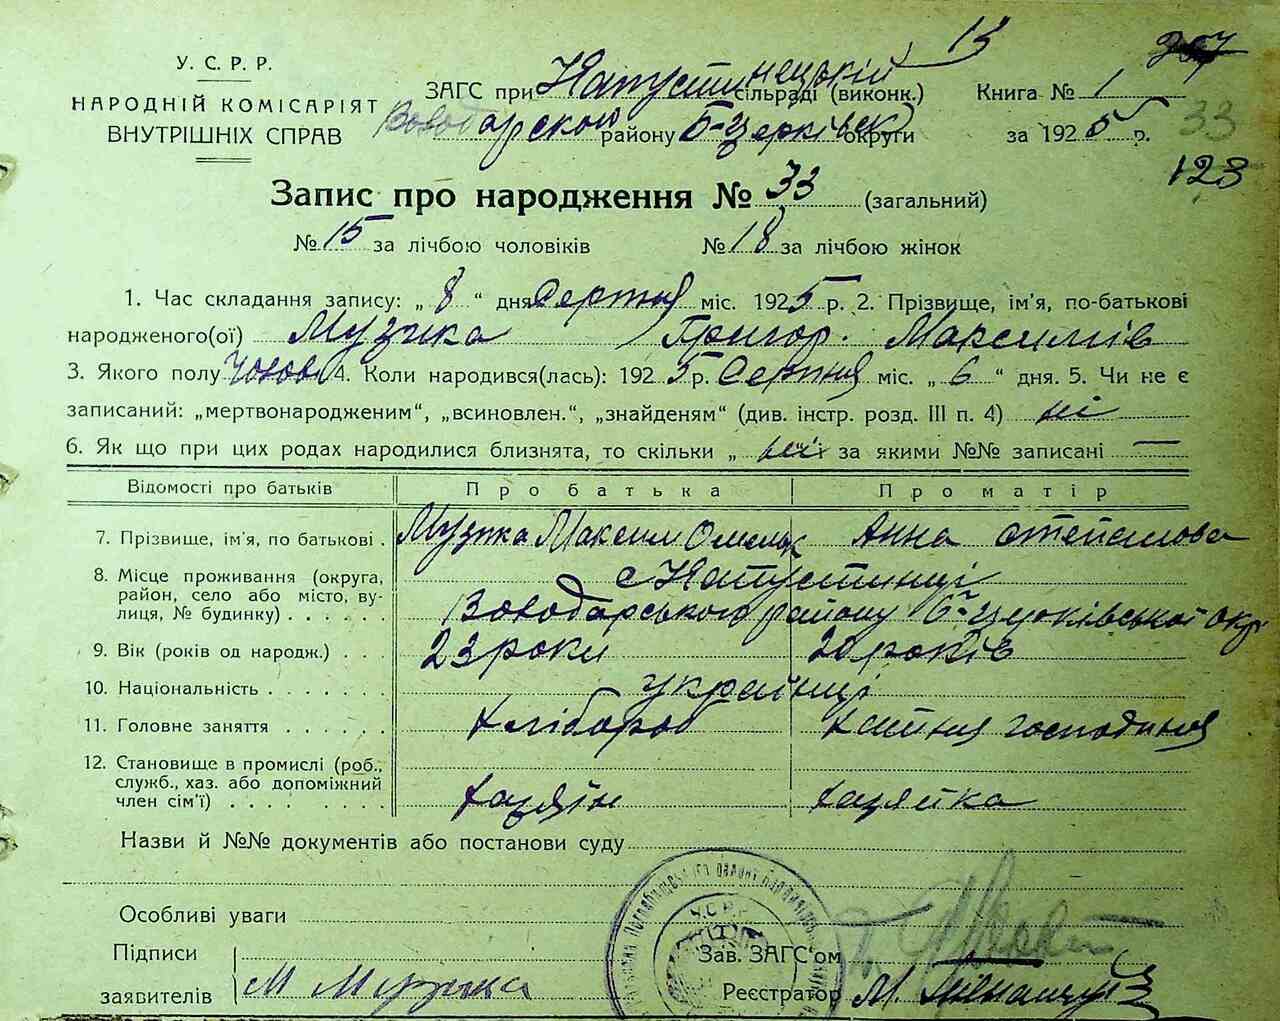 13
У. С. Р. Р.
НАРОДНІЙ КОМІСАРІЯТ
ВНУТРІШНІХ СПРАВ
ЗАГС при Капустинецькій сільраді (виконк.) Книга № 1
Володарского району Б-Церківськ округи за 1925 р. 33
123
Запис про народження № 33 (загальний)
№ 15 за лічбою чоловіків № 18 за лічбою жінок
1. Час складання запису: „ 8 “ дня Серпня міс. 1925 р. 2. Прізвище, ім'я, по-батькові
народженого(ої) Музика Григор. Максимів
3. Якого полу Чолові 4. Коли народився(лась): 1925 р. Серпня міс. „ 6 “ дня. 5. Чи не є
записаний: „мертвонародженим“, „всиновлен.“, „знайденям“ (див. інстр. розд. III п. 4) ні
6. Як що при цих родах народилися близнята, то скільки „ “ за якими №№ записані —
Відомості про батьків Про батька Про матір
7. Прізвище, ім'я, по батькові . Музика Максим Омельк Анна Степанова
8. Місце проживання (округа, район, село або місто, вулиця, № будинку) . . . . . . с Капустинці
Володарського району Б-Церківської окр
9. Вік (років од народж.) . . . 23 роки 20 років
10. Національність . . . . . . . українці
11. Головне заняття . . . . . . хлібороб хатня господиня
12. Становище в промислі (роб., служб., хаз. або допоміжний член сім'ї) . . . . . . . . хазяїн хазяйка
Назви й №№ документів або постанови суду
Особливі уваги
У.С.Р.Р.
Підписи заявителів М Музика
Зав. ЗАГС'ом
Реєстратор М.